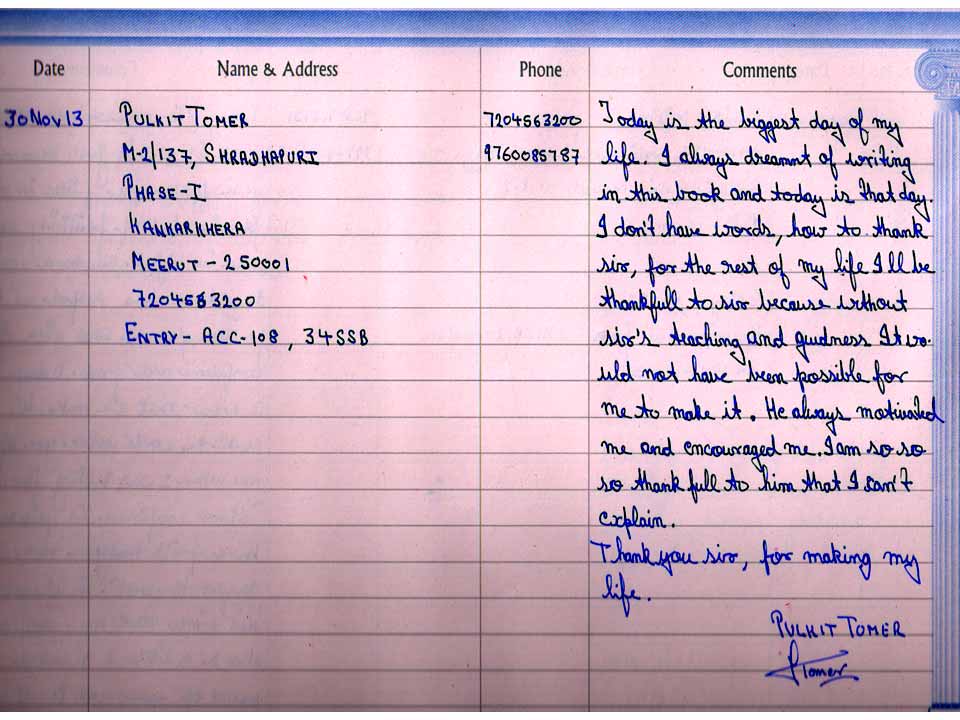 Date Name & Address Phone Comments
30 Nov 13 PULKIT TOMER 7204563200 Today is the biggest day of my
M-2/137, SHRADHAPURI 9760085787 life. I always dreamnt of writing
PHASE-I in this book and today is that day.
KANKARKHERA I don't have words, how to thank
MEERUT - 250001 sir, for the rest of my life I'll be
7204563200 thankfull to sir because without
ENTRY - ACC-108, 34SSB sir's teaching and guidness It wo-
uld not have been possible for
me to make it. He always motivated
me and encouraged me. I am so so
so thankfull to him that I can't
explain.
Thank you sir, for making my
life.
PULKIT TOMER
PTomer